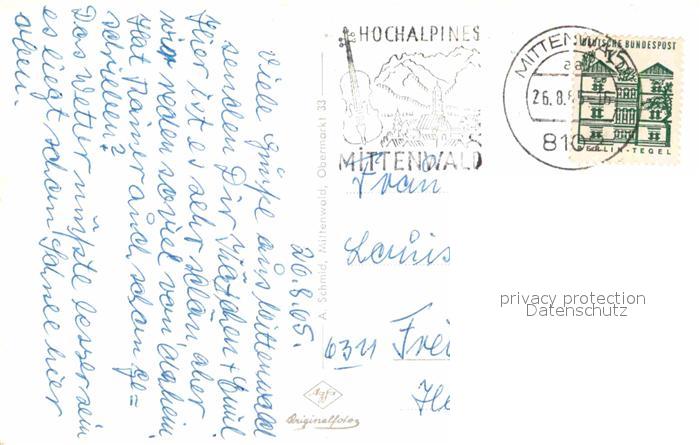 26.8.65.
Viele Grüße aus Mittenwald
senden Dir Käschen + Emil.
Hier ist es sehr schön, aber
wir reden soviel von daheim.
Hat Rainer auch schon ge=
schrieben?
Das Wetter müßte besser sein
es liegt schon Schnee hier
oben.
A. Schmid, Mittenwald, Obermarkt 33
Agfa
Originalfoto
HOCHALPINES
MITTENWALD
MITTENWALD
aa
26.8.65-16
810
DEUTSCHE BUNDESPOST
BERLIN-TEGEL
Frau
Louis
6311 Frei
He
privacy protection
Datenschutz